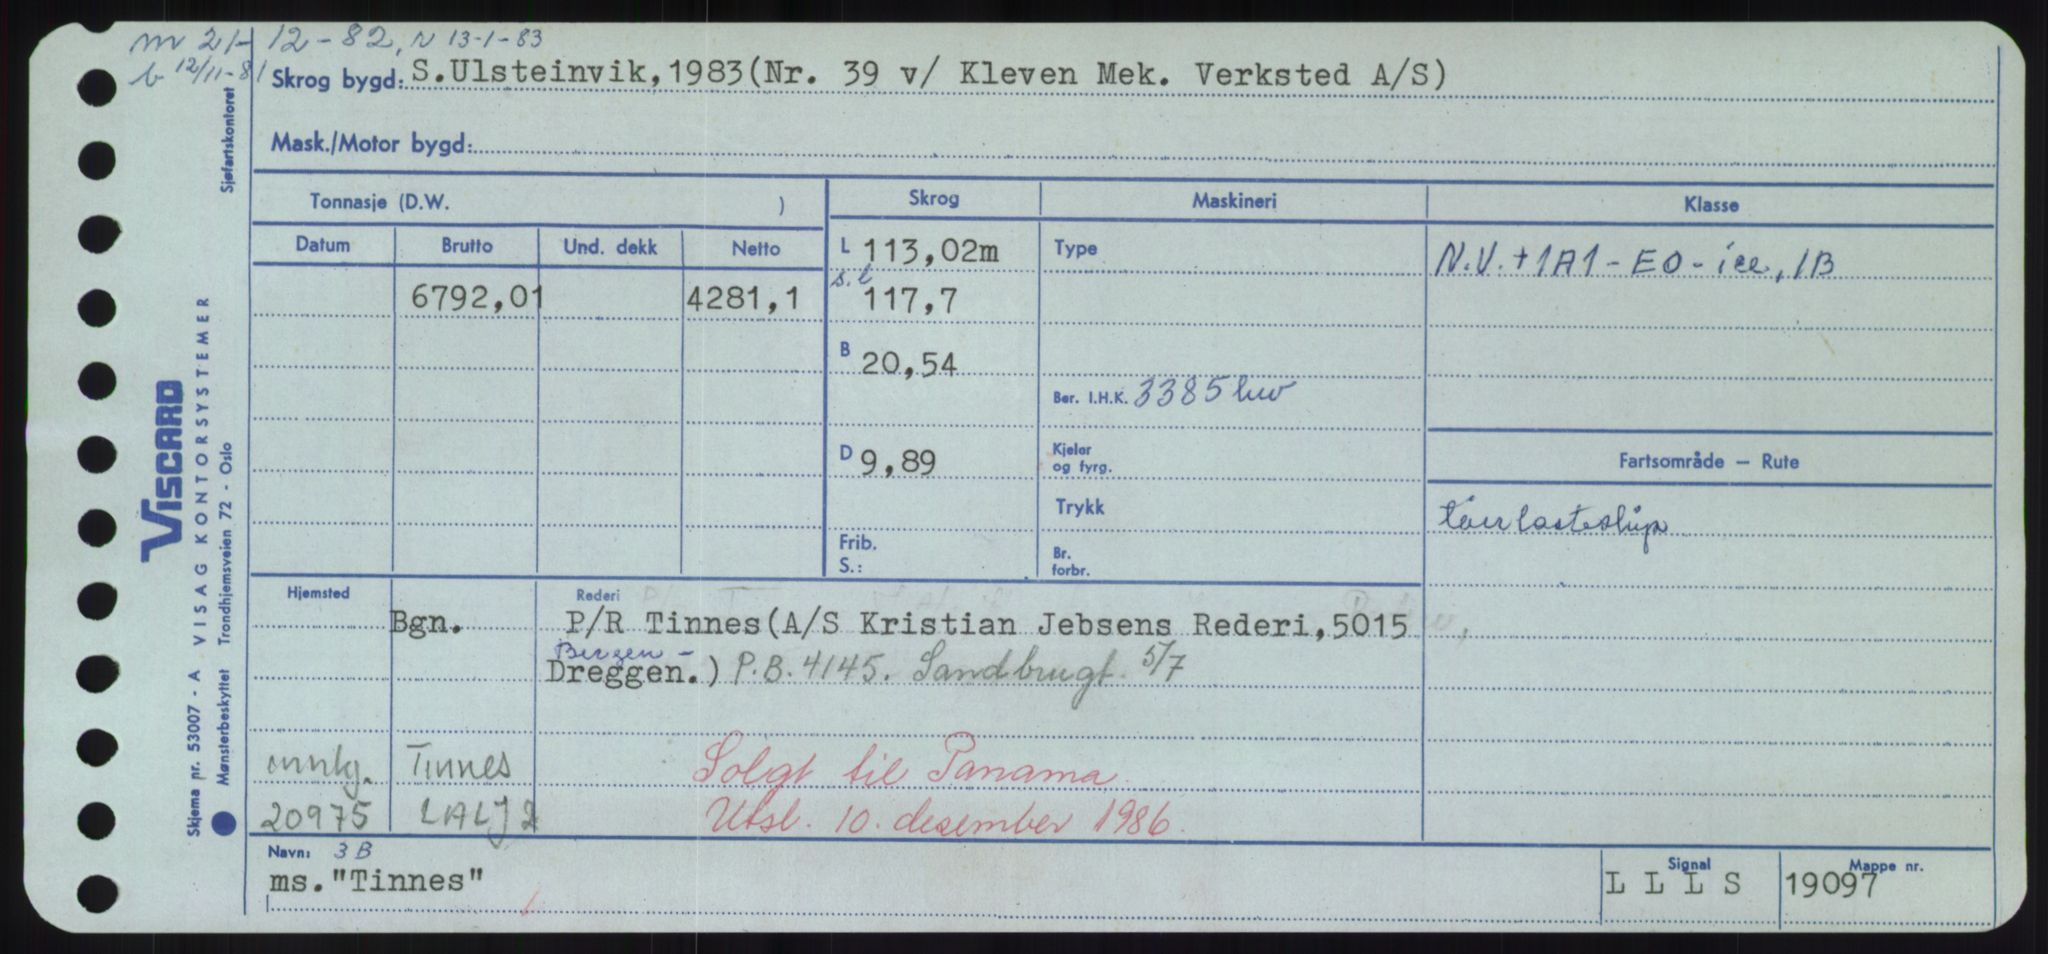 m 21-12-82, N 13-1-83
b 12/11-81
Skrog bygd: S.Ulsteinvik, 1983(Nr. 39 v/ Kleven Mek. Verksted A/S)
Mask./Motor bygd:
Tonnasje (D.W. )
Skrog
Maskineri
Klasse
Datum
Brutto
Und. dekk
Netto
L 113,02m
Type
N.V.+1A1-EO-ice, 1B
6792,01
4281,1
s.l 117,7
B 20,54
Ber. I.H.K. 3385 kw
D 9,89
Kjeler
og fyrg.
Fartsområde — Rute
Trykk
tørrlasteskip
Frib.
S.:
Br.
forbr.
Hjemsted
Rederi
Bgn.
P/R Tinnes(A/S Kristian Jebsens Rederi,5015
Bergen -
Dreggen.) P.B. 4145. Sandbrugt. 5/7
Tinnes
Solgt til Panama
20975
LALJ2
Utsl. 10. desember 1986.
Navn: 3B
ms."Tinnes"
Signal
L L L S
Mappe nr.
19097
Sjøfartskontoret
VISCARD
Skjema nr. 53007 - A VISAG KONTORSYSTEMER
Mønsterbeskyttet Trondhjemsveien 72 - Oslo